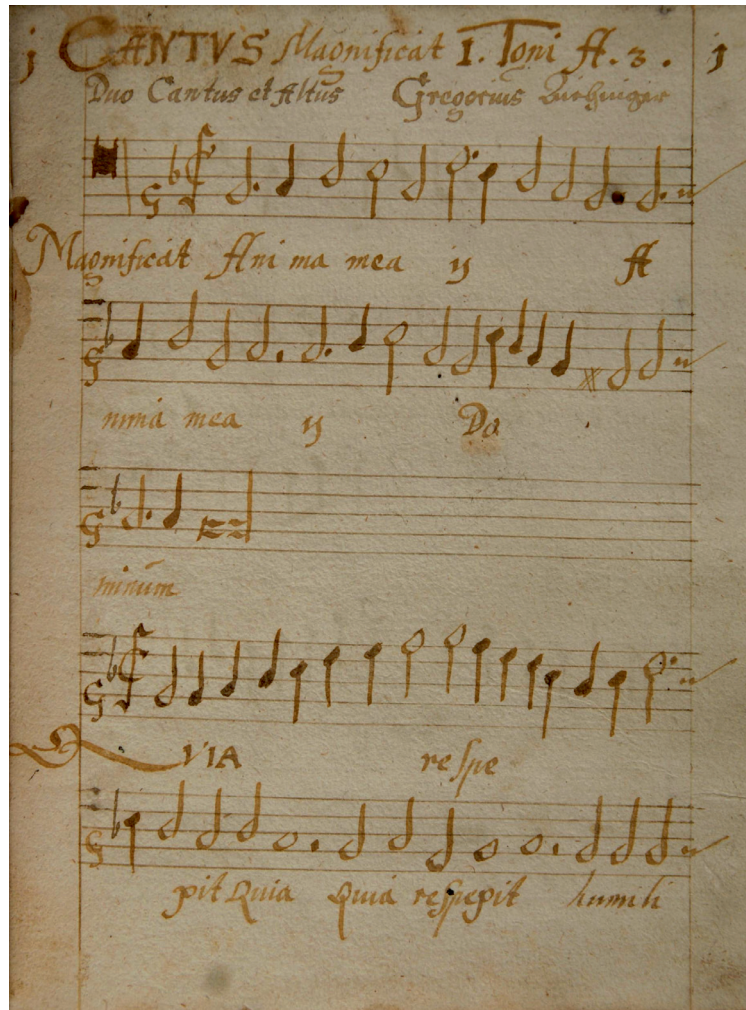 j CANTVS Magnificat I. Toni A. 3. 1
Duo Cantus et Altus Gregorius
Magnificat Ani ma mea ij A
nima mea ij Do
minum
QVIA respe
pit Quia Quia respepit humili